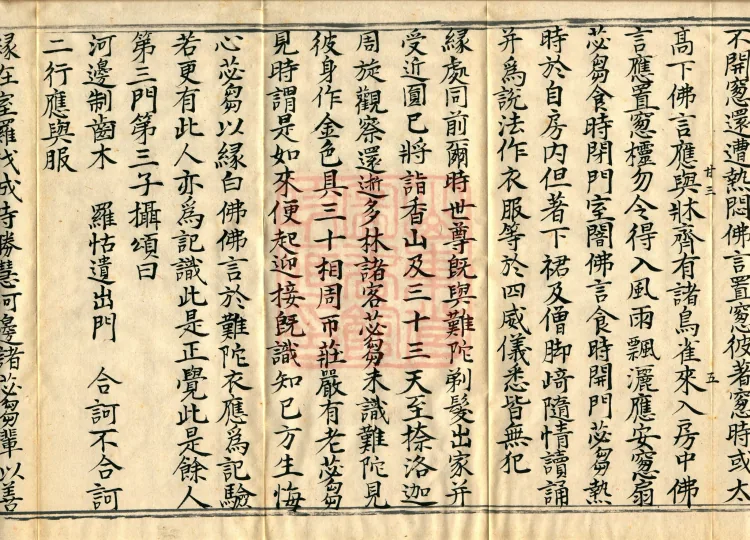 不開窓還遭熱悶佛言置窓彼著窓時或太
髙下佛言應與牀齊有諸鳥雀來入房中佛
言應置窓櫺勿令得入風雨飄灑應安窓扇
苾芻食時閉門室闇佛言食時開門苾芻熱
時於自房内但著下裙及僧脚﨑隨情讀誦
并爲說法作衣服等於四威儀悉皆無犯
緣處同前爾時世尊旣與難陀剃髮出家并
受近圓已將詣香山及三十三天至捺洛迦
周旋觀察還逝多林諸客苾芻未識難陀見
彼身作金色具三十相周帀莊嚴有老苾芻
見時謂是如來便起迎接旣識知已方生悔
心苾芻以緣白佛佛言於難陀衣應爲記驗
若更有此人亦爲記識此是正覺此是餘人
第三門第三子攝頌曰
河邊制齒木　羅怙遣出門　合訶不合訶
二行應與服
緣在室羅伐城時勝慧河邊諸苾芻輩以善
廿三
五